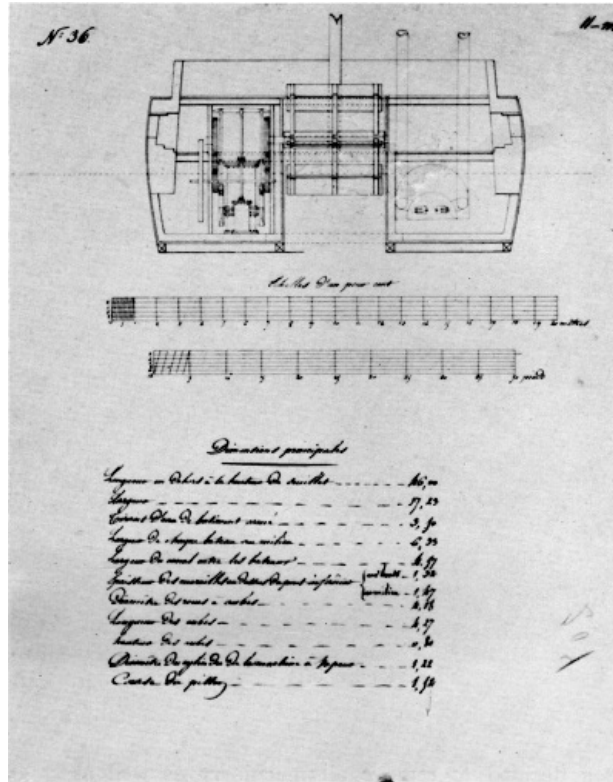 N.° 36.
Echelles d'un pour cent
20 mètres
30 pieds
Dimensions principales
Longueur en dehors à la hauteur de seuillet 46,00
Largeur 17,23
Tirant d'eau du bâtiment armé 3,50
Largeur de chaque bateau au milieu 6,33
Largeur du canal entre les bateaux 4,57
Epaisseur des murailles au dessus du pont inférieur 1,32
au milieu 1,47
Diamètre des roues à aubes
Longueur des aubes 4,27
hauteur des aubes 0,80
Diamètre du cylindre de la machine à vapeur 1,22
Course du piston 1,52